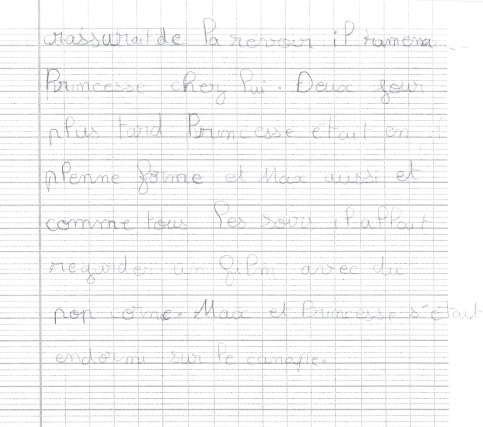 rassurait de la revoir il ramena
Princesse chez lui. Deux jour
plus tard Princesse était en
plenne forme et Max aussi et
comme tous les soirs il allait
regarder un film avec du
pop corne. Max et Princesse s'était
endormi sur le canapé.